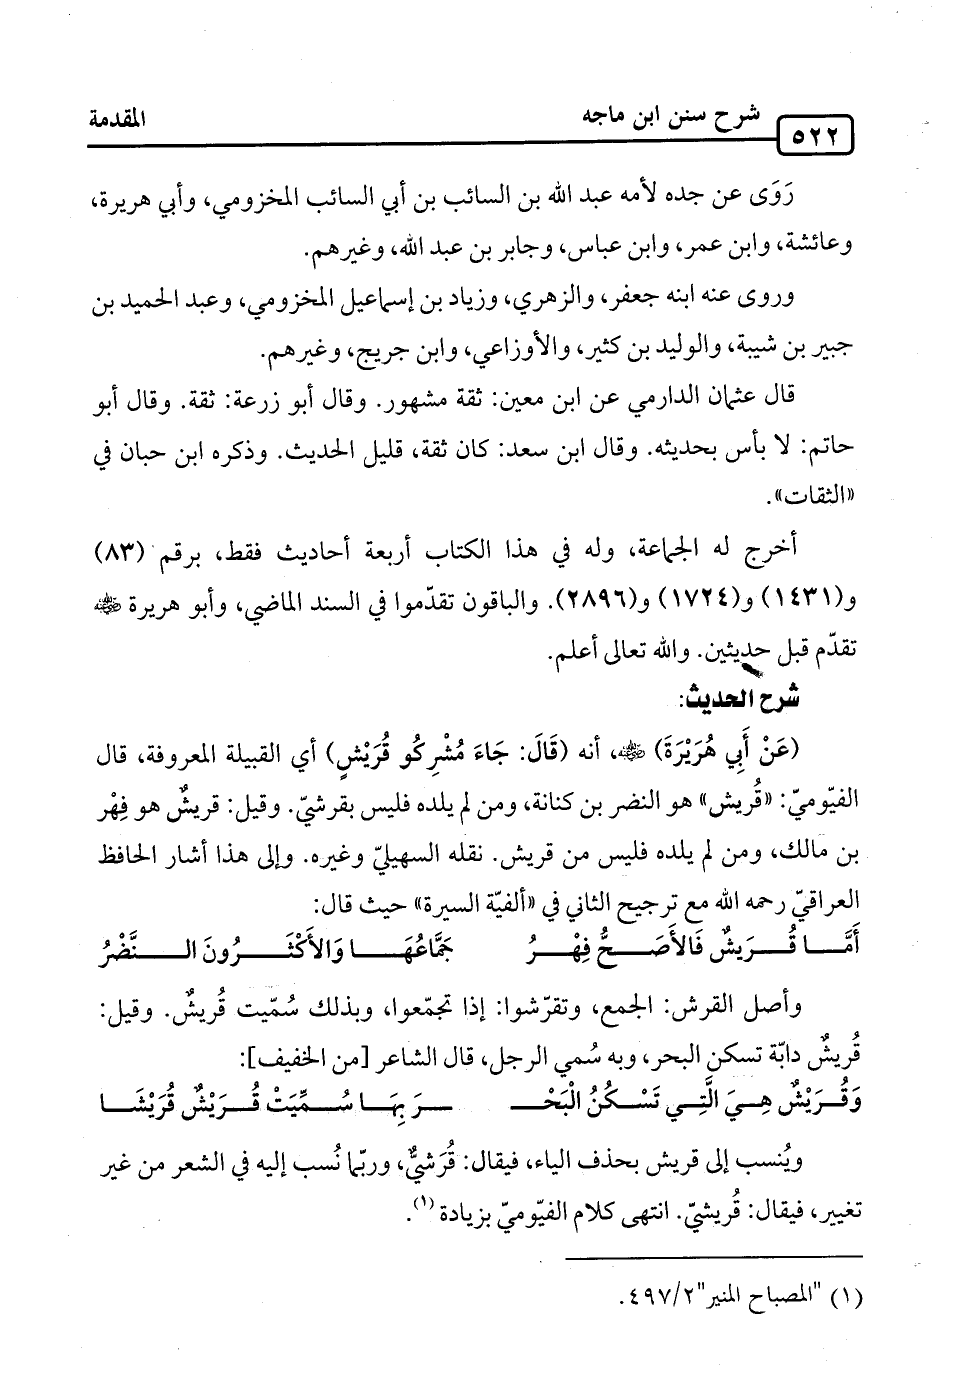 شرح سنن ابن ماجه
المقدمة
٥٢٢
رَوَى عن جده لأمه عبد الله بن السائب بن أبي السائب المخزومي، وأبي هريرة،
وعائشة، وابن عمر، وابن عباس، وجابر بن عبد الله، وغيرهم.
وروى عنه ابنه جعفر، والزهري، وزياد بن إسماعيل المخزومي، وعبد الحميد بن
جبير بن شيبة، والوليد بن كثير، والأوزاعي، وابن جريج، وغيرهم.
قال عثمان الدارمي عن ابن معين: ثقة مشهور. وقال أبو زرعة: ثقة. وقال أبو
حاتم: لا بأس بحديثه. وقال ابن سعد: كان ثقة، قليل الحديث. وذكره ابن حبان في
«الثقات».
أخرج له الجماعة، وله في هذا الكتاب أربعة أحاديث فقط، برقم (٨٣)
و(١٤٣١) و(١٧٢٤) و(٢٨٩٦). والباقون تقدّموا في السند الماضي، وأبو هريرة رضي الله عنه
تقدّم قبل حديثين. والله تعالى أعلم.
شرح الحديث:
(عَنْ أَبِي هُرَيْرَةَ) رضي الله عنه، أنه (قَالَ: جَاءَ مُشْرِكُو قُرَيْشٍ) أي القبيلة المعروفة، قال
الفيّوميّ: «قُريش» هو النضر بن كنانة، ومن لم يلده فليس بقرشيّ. وقيل: قريشٌ هو فِهْر
بن مالك، ومن لم يلده فليس من قريش. نقله السهيليّ وغيره. وإلى هذا أشار الحافظ
العراقيّ رحمه الله مع ترجيح الثاني في «ألفيّة السيرة» حيث قال:
أَمَّا قُرَيْشٌ فَالأَصَحُّ فِهْرُ جَمَّاعُهَا وَالأَكْثَرُونَ النَّضْرُ
وأصل القرش: الجمع، وتقرّشوا: إذا تجمّعوا، وبذلك سُمّيت قُريشٌ. وقيل:
قُريشٌ دابّة تسكن البحر، وبه سُمي الرجل، قال الشاعر [من الخفيف]:
وَقُرَيْشٌ هِيَ الَّتِي تَسْكُنُ الْبَحْـ ـرَ بِهَا سُمِّيَتْ قُرَيْشٌ قُرَيْشَا
ويُنسب إلى قريش بحذف الياء، فيقال: قُرَشيٌّ، وربّما نُسب إليه في الشعر من غير
تغيير، فيقال: قُريشيّ. انتهى كلام الفيّوميّ بزيادة(١).
(١) "المصباح المنير" ٤٩٧/٢.